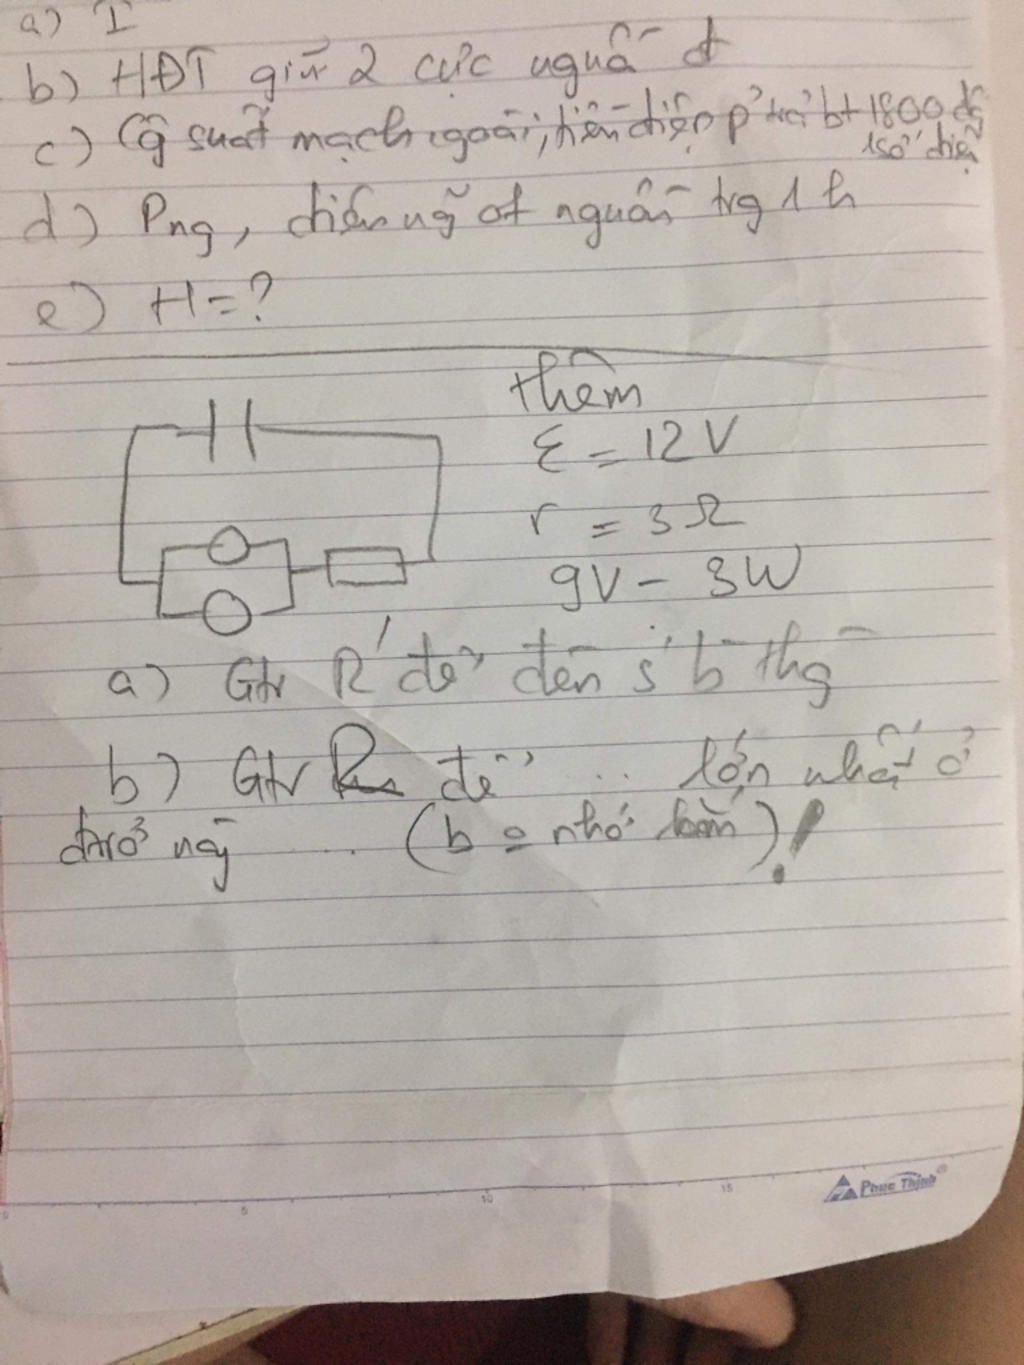 a) I
b) HĐT giữ 2 cực nguồ đ
c) Cg suất mạch ngoài, tiền điện p' trả bt 1800 đ
1 số điện
d) Png, điện ng ot nguồn trg 1 h
e) H = ?
thêm
ε = 12V
r = 3Ω
9V - 3W
a) Gtr R để đèn s b thg
b) Gtr R để ... lớn nhất ở
trở này .... (b = nhớ bắn) !
Phuc Thinh
5
10
15